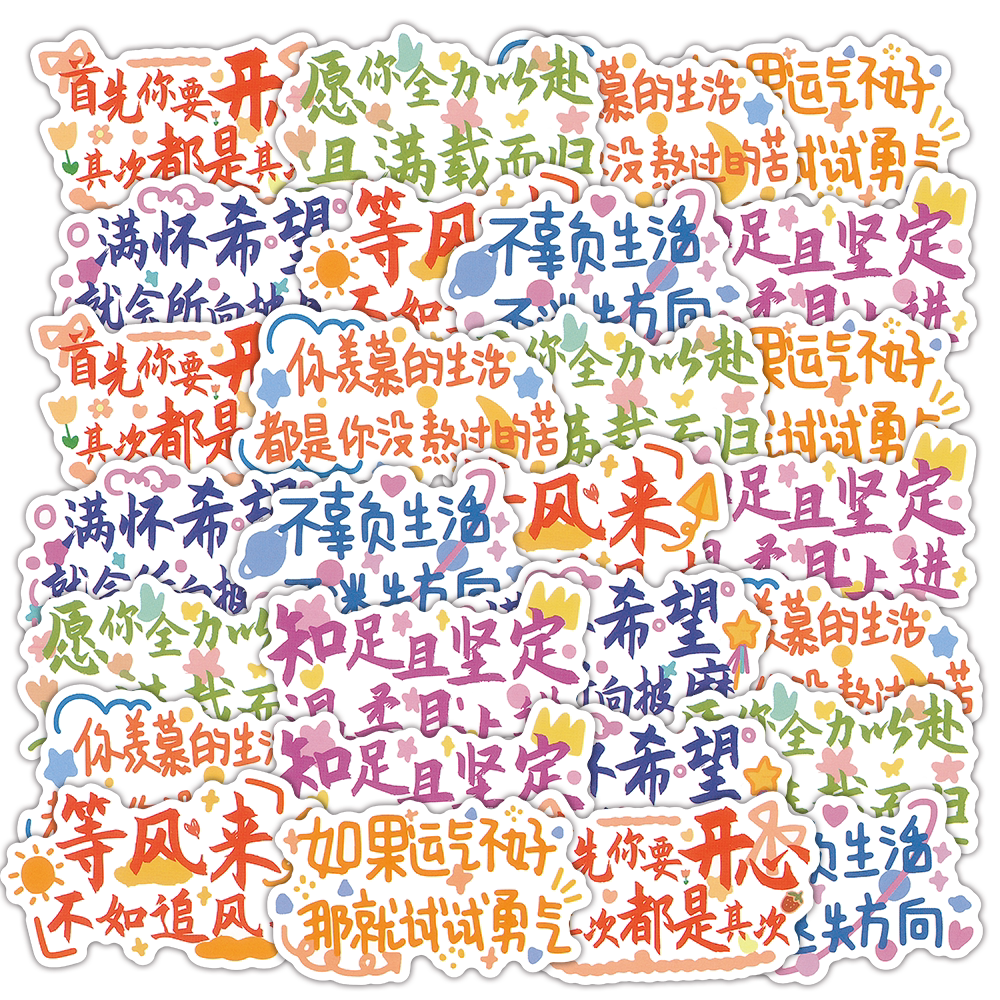 首先你要开
其次都是其
愿你全力以赴
且满载而归
慕的生活
没熬过的苦
果运气不好
试试勇气
满怀希望
就会所向披
等风
不如
不辜负生活
不迷失方向
足且坚定
柔且上进
首先你要开
其次都是
你羡慕的生活
都是你没熬过的苦
你全力以赴
满载而归
果运气不好
试试勇气
满怀希望
就会所向披
不辜负生活
不迷失方向
风来
足且坚定
温柔且上进
愿你全力以
满载而归
知足且坚定
温柔且上进
希望
向披靡
羡慕的生活
没熬过的苦
你羡慕的生活
知足且坚定
怀希望
愿你全力以赴
满载而归
等风来
不如追风
如果运气不好
那就试试勇气
先你要开心
次都是其次
负生活
迷失方向